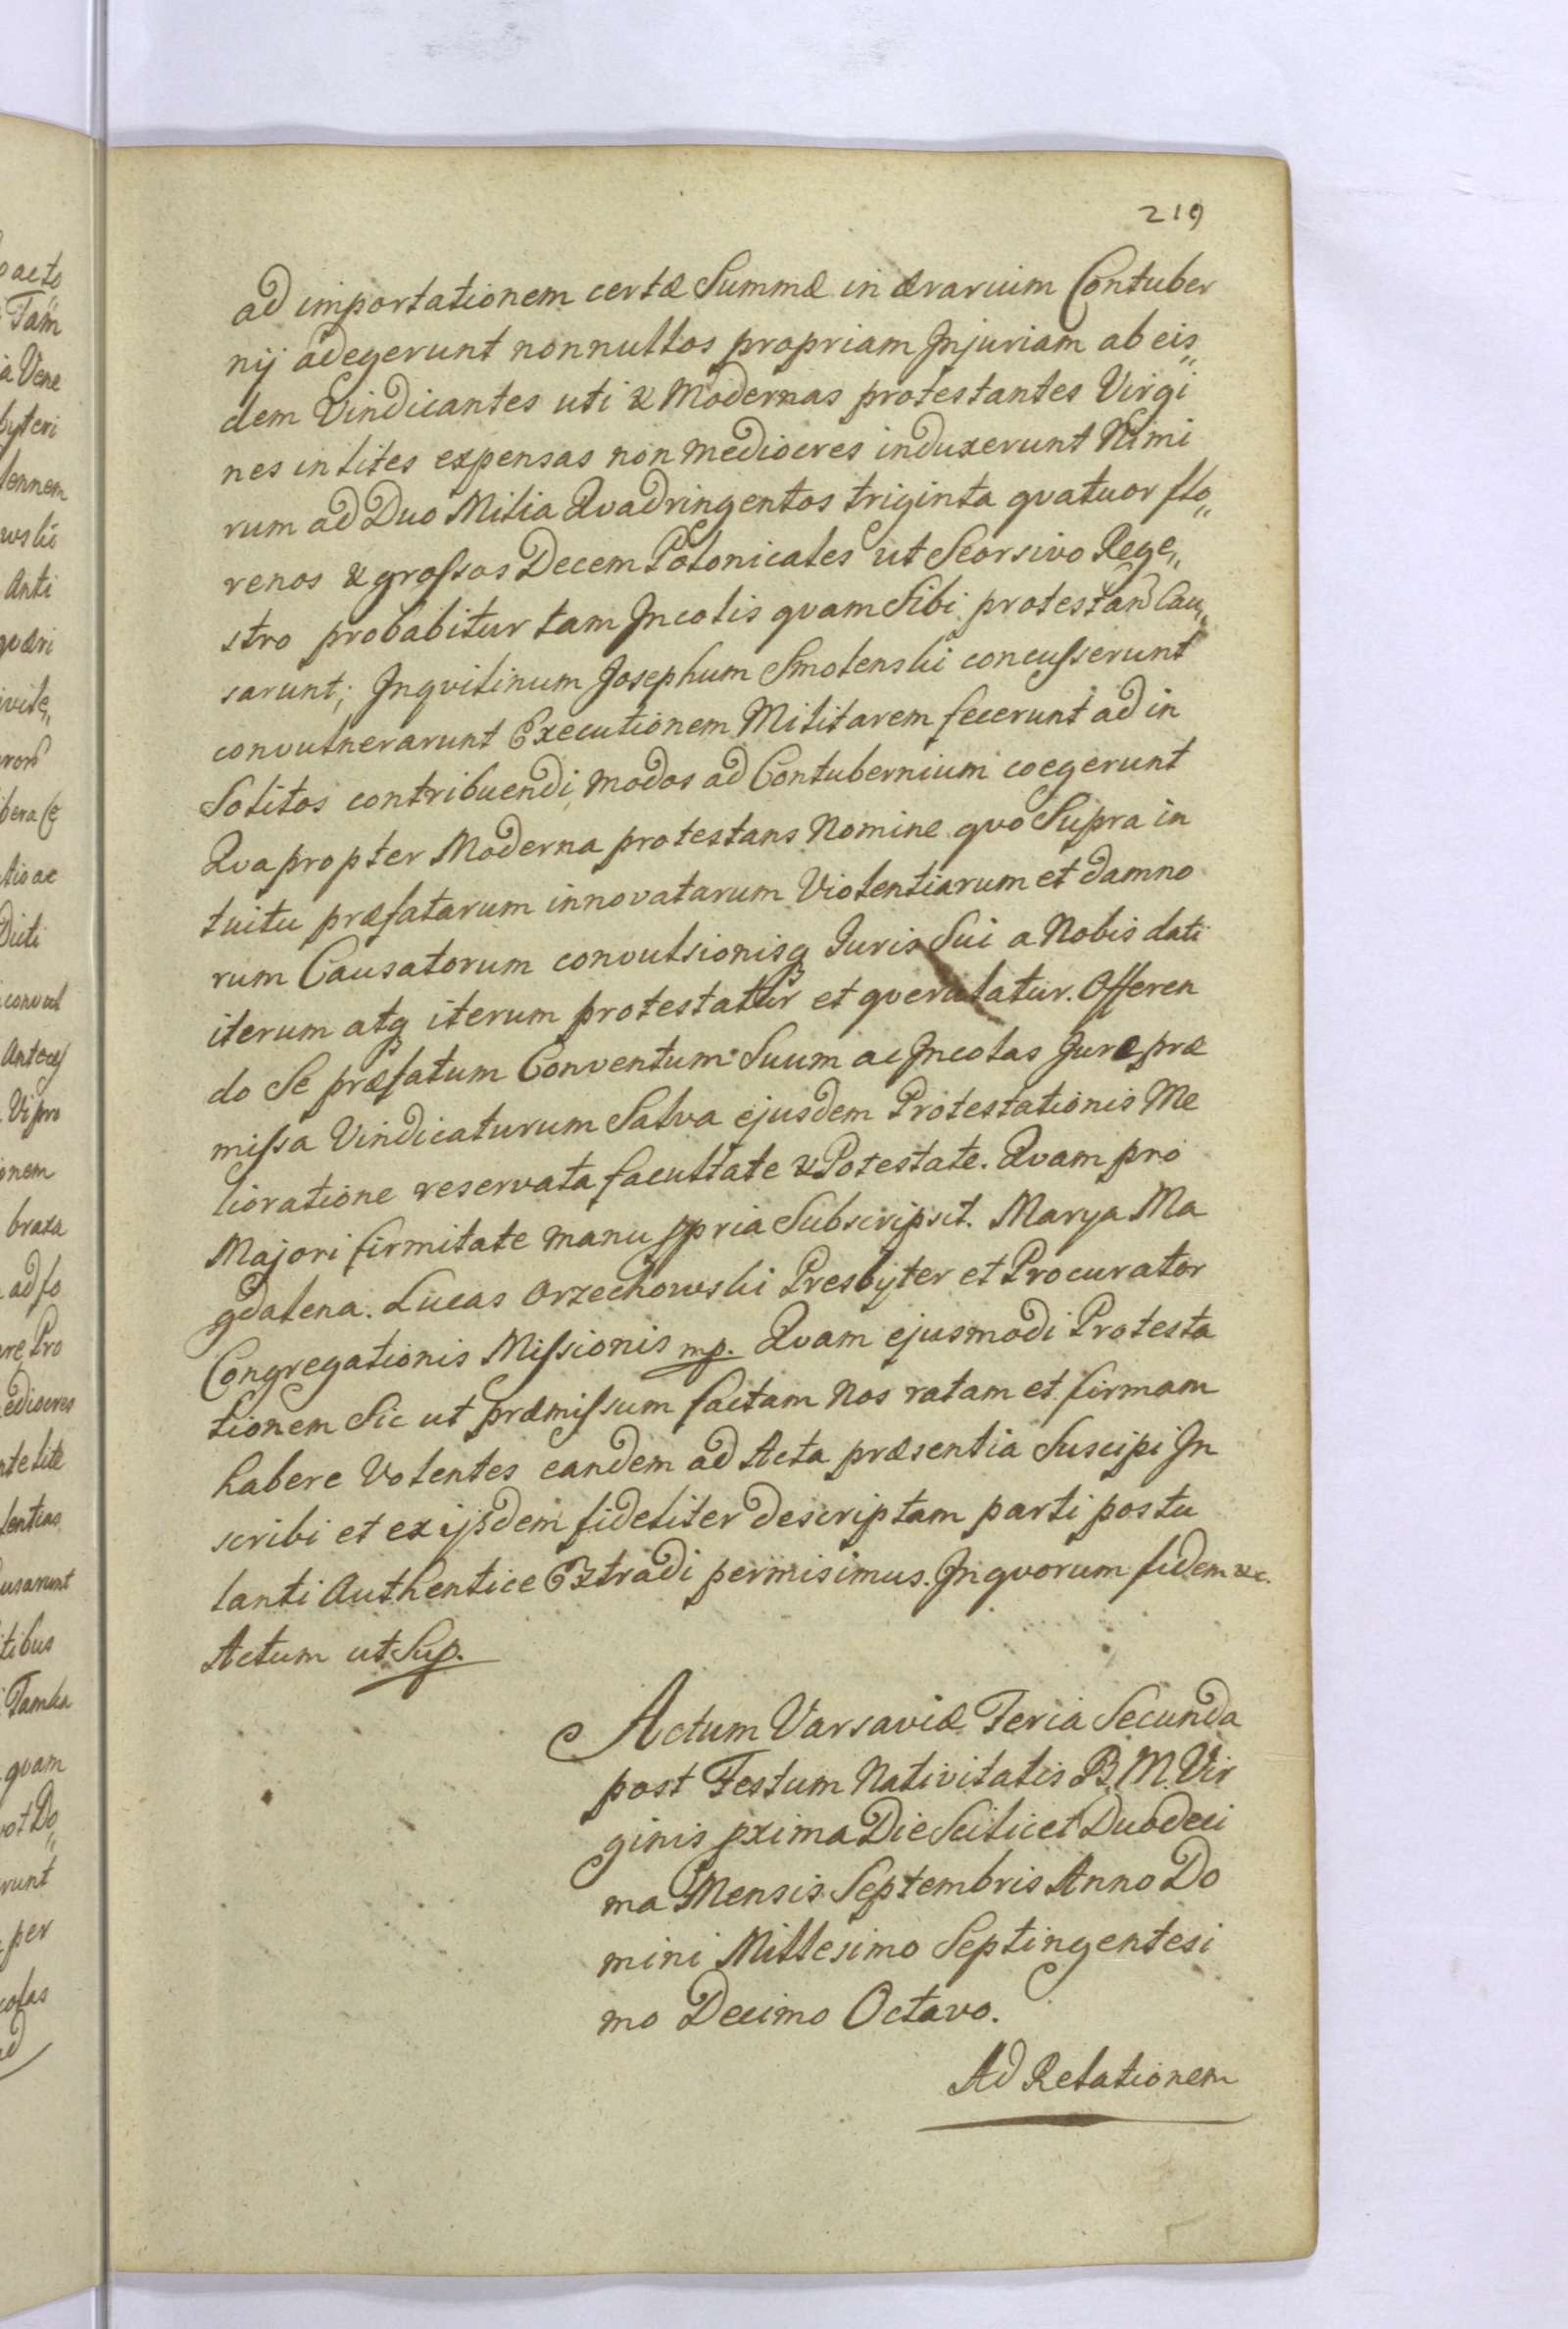 219
ad importationem certæ Summæ in ærarium Contuber
nij adegerunt nonnullos propriam Injuriam ab eis„
dem Vindicantes uti & Modernas protestantes Virgi
nes in lites expensas non mediocres induxerunt Nimi
rum ad Duo Milia Qvadringentos triginta qvatuor flo„
renos & grossos Decem Polonicales ut Seorsivo Rege„
stro probabitur tam Incolis qvam Sibi protestan Cau„
sarunt; Inqvilinum Josephum Smolenski concusserunt
convulnerarunt Executionem Militarem fecerunt ad in
Solitos contribuendi modos ad Contubernium coegerunt
Qvapropter Moderna protestans Nomine qvo Supra in
tuitu præfatarum innovatarum Violentiarum et damno
rum Causatorum convulsionisq Juris Sui a Nobis dati
iterum atq iterum protestatur et qverulatur. Offeren
do Se præfatum Conventum Suum ac Incolas Jure præ
missa Vindicaturum Salva ejusdem Protestationis Me
lioratione reservata facultate & Potestate. Qvam pro
Majori firmitate manu ppria Subscripsit. Marya Ma
gdalena. Lucas Orzechowski Presbyter et Procurator
Congregationis Missionis mp. Qvam ejusmodi Protesta
tionem Sic ut præmissum factam Nos ratam et firmam
habere Volentes eandem ad Acta præsentia Suscipi In
scribi et ex ijsdem fideliter descriptam parti postu
lanti Authentice Extradi permisimus. In qvorum fidem &c.
Actum ut Sup.
Actum Varsaviæ Feria Secunda
post Festum Nativitatis B. M. Vir
ginis pxima Die Scilicet Duodeci
ma Mensis Septembris Anno Do
mini Millesimo Septingentesi
mo Decimo Octavo.
Ad Relationem